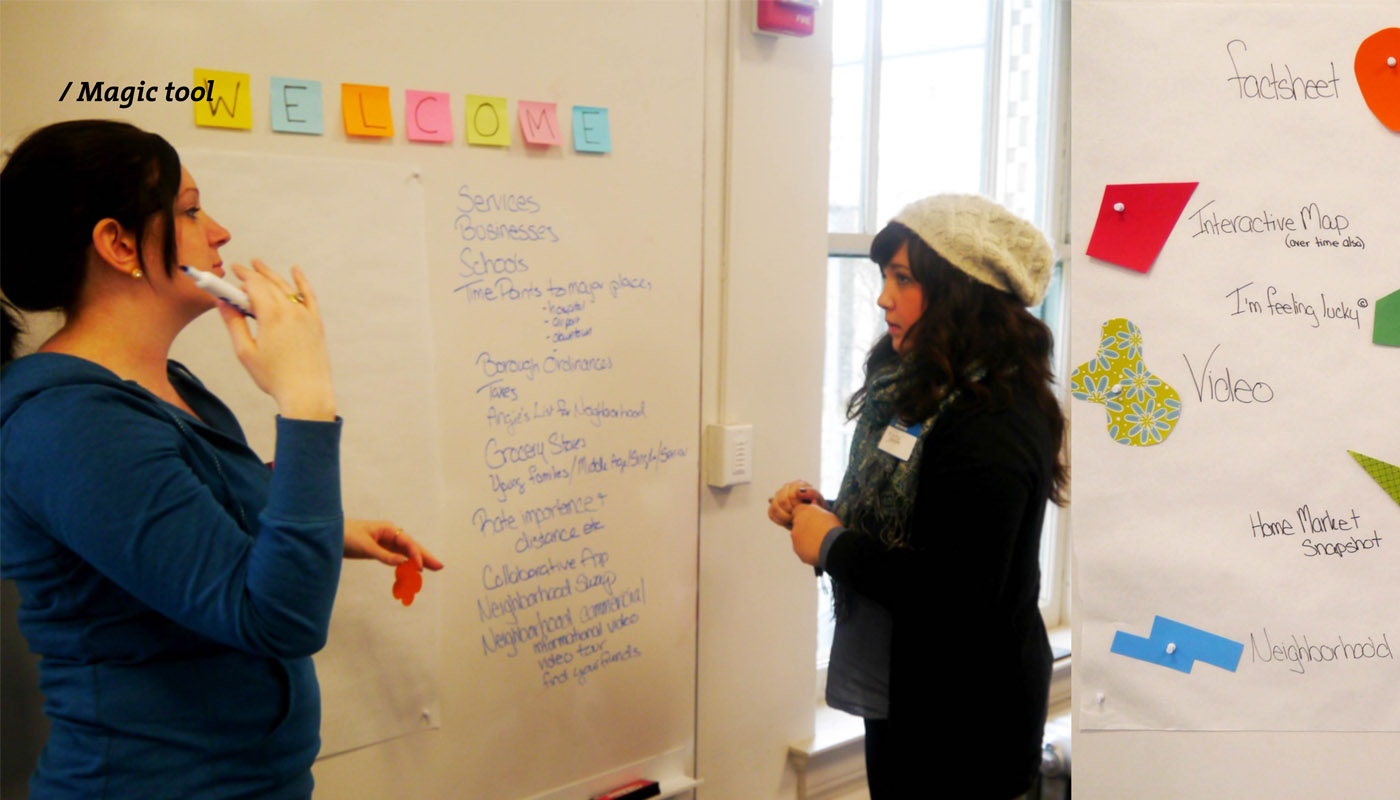 / Magic tool
WELCOME
Services
Businesses
Schools
Time Points to major places
- hospital
- airport
- downtown
Borough Ordinances
Taxes
Angie's List for Neighborhood
Grocery Stores
Young families/Middle Age/Single/Senior
Rate importance +
distance etc
Collaborative App
Neighborhood Swap
Neighborhood commercial
informational video
video tour
find your friends
FIRE
factsheet
Interactive Map
(over time also)
I'm feeling lucky©
Video
Home Market
Snapshot
Neighborhood